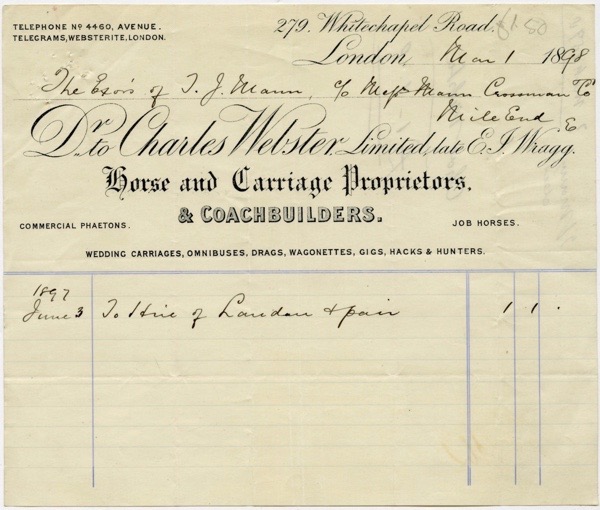 TELEPHONE Nº 4460, AVENUE.
TELEGRAMS, WEBSTERITE, LONDON.
279, Whitechapel Road.
London, Mar 1 1898
The Exors of T. J. Mann, c/o Messrs Mann Crossman & Co
Mile End E
Dr. to Charles Webster, Limited, late E. J. Wragg.
Horse and Carriage Proprietors,
& COACHBUILDERS.
COMMERCIAL PHAETONS.
JOB HORSES.
WEDDING CARRIAGES, OMNIBUSES, DRAGS, WAGONETTES, GIGS, HACKS & HUNTERS.
1897
June 3 To Hire of Landau & pair 1 1 .